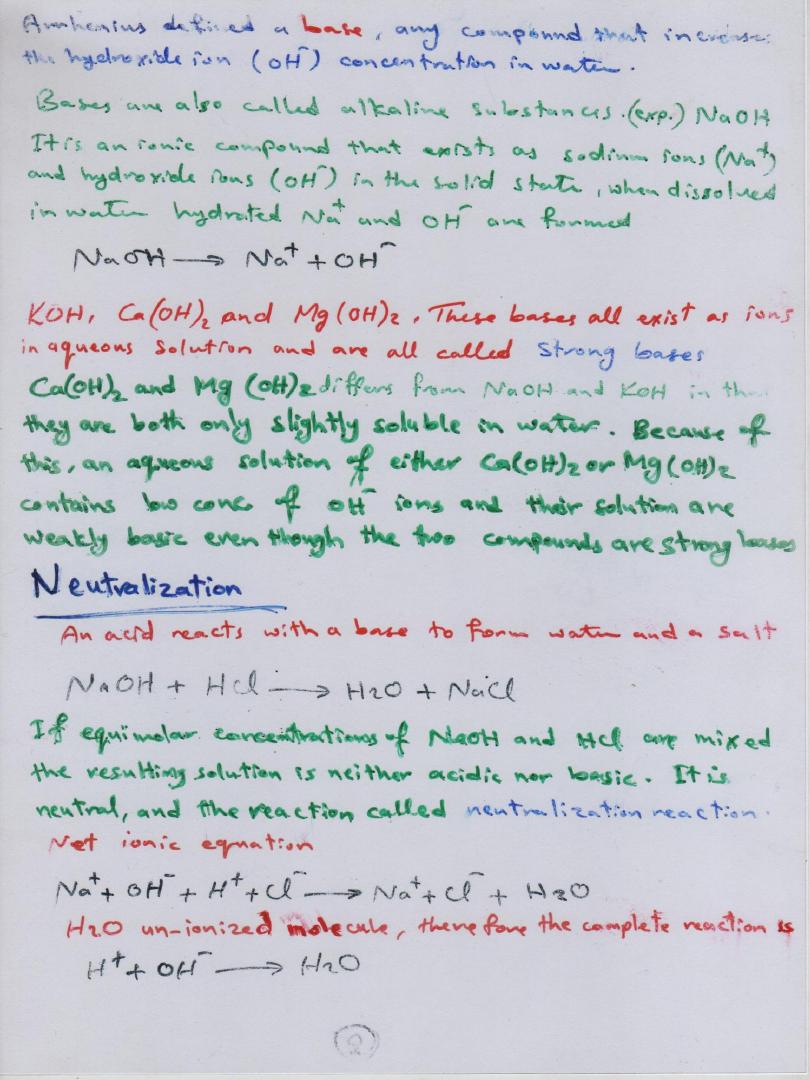 Arrhenius defined a base, any compound that increase
the hydroxide ion (OH⁻) concentration in water.
Bases are also called alkaline substances. (exp.) NaOH
It is an ionic compound that exists as sodium ions (Na⁺)
and hydroxide ions (OH⁻) in the solid state, when dissolved
in water hydrated Na⁺ and OH⁻ are formed
NaOH → Na⁺ + OH⁻
KOH, Ca(OH)₂ and Mg(OH)₂, These bases all exist as ions
in aqueous solution and are all called Strong bases
Ca(OH)₂ and Mg(OH)₂ differs from NaOH and KOH in
they are both only slightly soluble in water. Because of
this, an aqueous solution of either Ca(OH)₂ or Mg(OH)₂
contains low conc of OH⁻ ions and their solution are
weakly basic even though the two compounds are strong bases
Neutralization
An acid reacts with a base to form water and a salt
NaOH + HCl → H₂O + NaCl
If equimolar concentrations of NaOH and HCl are mixed
the resulting solution is neither acidic nor basic. It is
neutral, and the reaction called neutralization reaction.
Net ionic equation
Na⁺ + OH⁻ + H⁺ + Cl⁻ → Na⁺ + Cl⁻ + H₂O
H₂O un-ionized molecule, therefore the complete reaction is
H⁺ + OH⁻ → H₂O
2